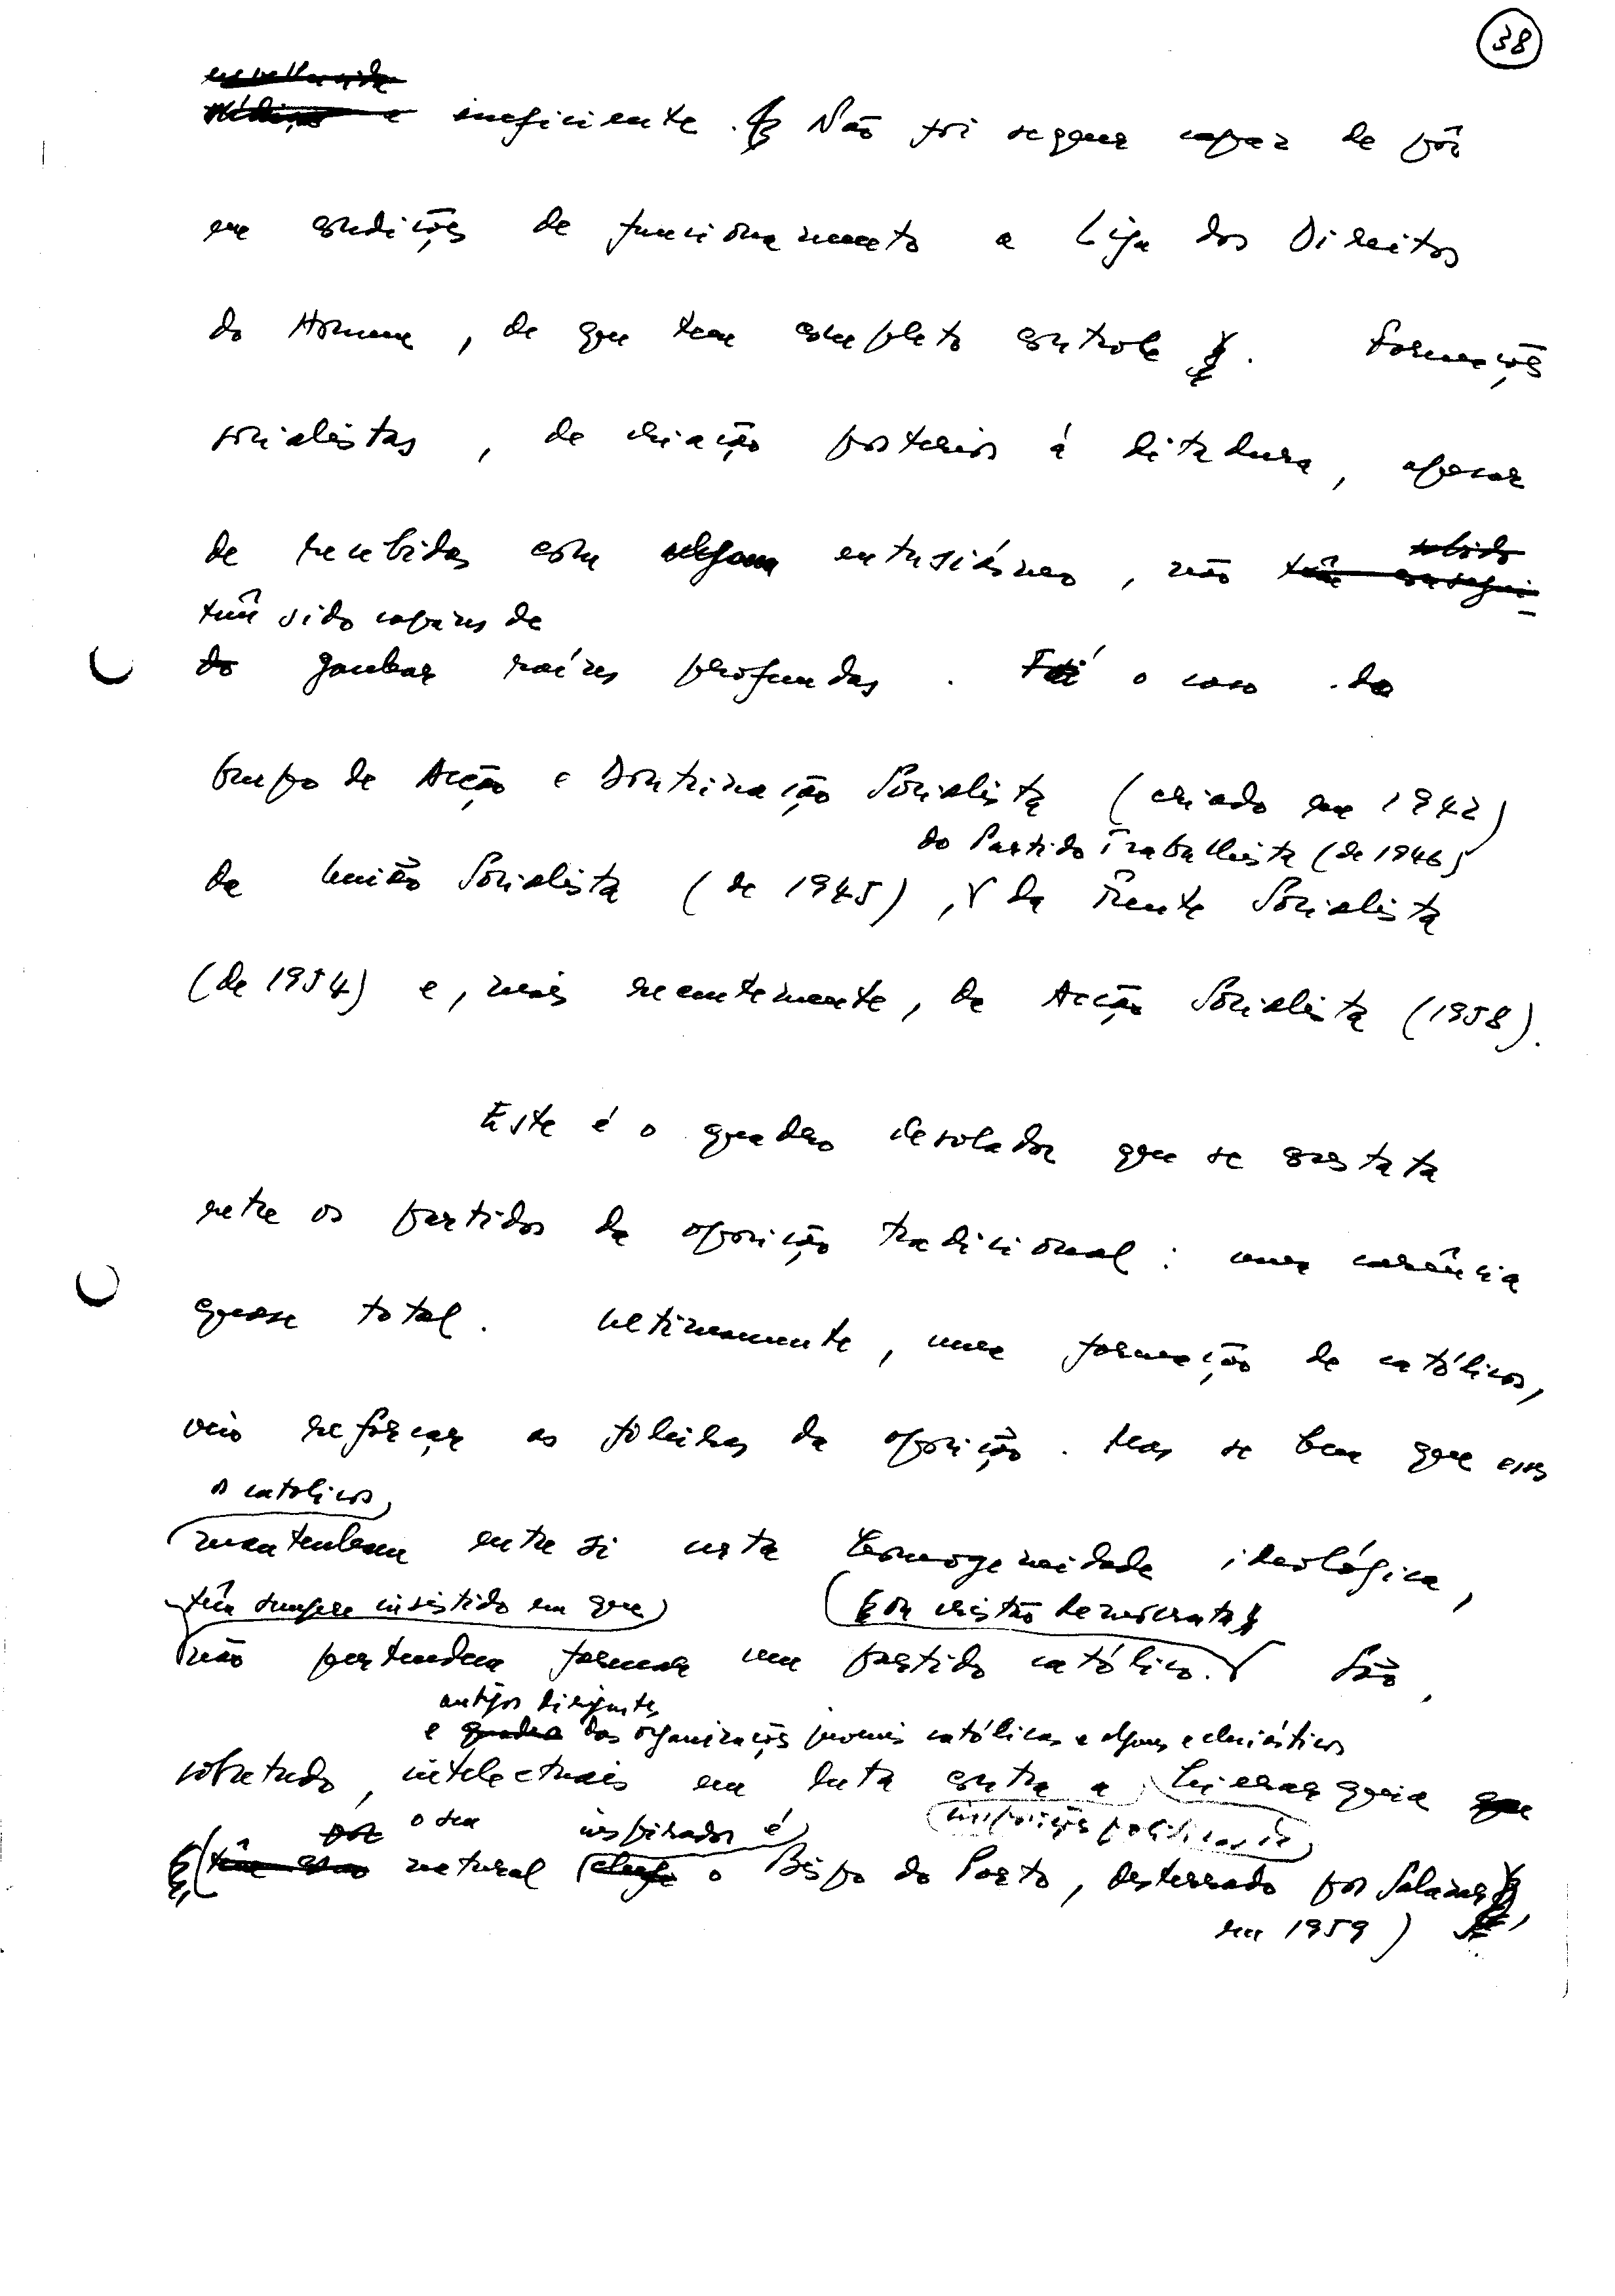 38
envelhecida
e ineficiente. Não foi sequer capaz de pôr
em condições de funcionamento a Liga dos Direitos
do Homem, de que tem completo controle. Formações
socialistas, de criação posterior à ditadura, apesar
de recebidas com algum entusiásmo, não têm consegui-
tido
têm sido capazes de
do ganhar raízes profundas. Foi o caso do
Grupo de Acção e Doutrinação Socialista (criado em 1942)
do Partido Trabalhista (de 1946)
da União Socialista (de 1945), da Frente Socialista
(de 1954) e, mais recentemente, da Acção Socialista (1958).
Este é o quadro desolador que se constata
entre os partidos da oposição tradicional: uma carência
quase total. Ultimamente, uma formação de católicos,
veio reforçar as fileiras da oposição. Mas se bem que esses
os catolicos,
mantenham entre si certa homogeneidade ideológica,
têm sempre insistido em que
ou cristão democrata
não pretendem formar um partido católico. São,
antigos dirigentes
e quadros das organizações juvenis católicas e alguns eclesiásticos
sobretudo, intelectuais em luta contra a hierarquia que
por o seu inspirador é imposições politicas da
têm como natural chefe o Bispo do Porto, desterrado por Salazar
em 1959)